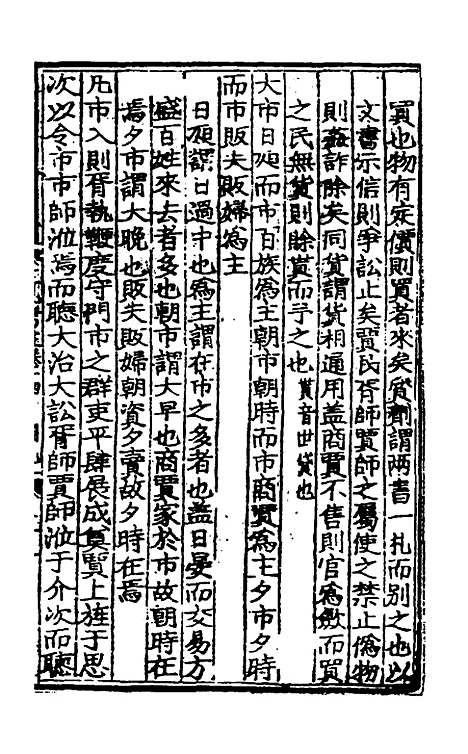 買也物有定價則買者來矣質劑謂兩書一扎而別之也以
文書示信則爭訟止矣賈民胥師賈師之屬使之禁止偽物
則姦詐除矣同貨謂貨相通用盖商賈不售則官為斂而買
之民無貨則賖貰而予之也貰音世貸也
大市日昃而市百族為主朝市朝時而市商賈為主夕市夕時
而市販夫販婦為主
日昃謂日過中也為主謂在市之多者也盖日晏而交易方
盛百姓來去者多也朝市謂大早也商賈家於市故朝時在
焉夕市謂大晚也販夫販婦朝資夕賣故夕時在焉
凡市入則胥執鞭度守門市之群吏平肆展成奠賈上旌于思
次以令市市師涖焉而聽大治大訟胥師賈師涖于介次而聽